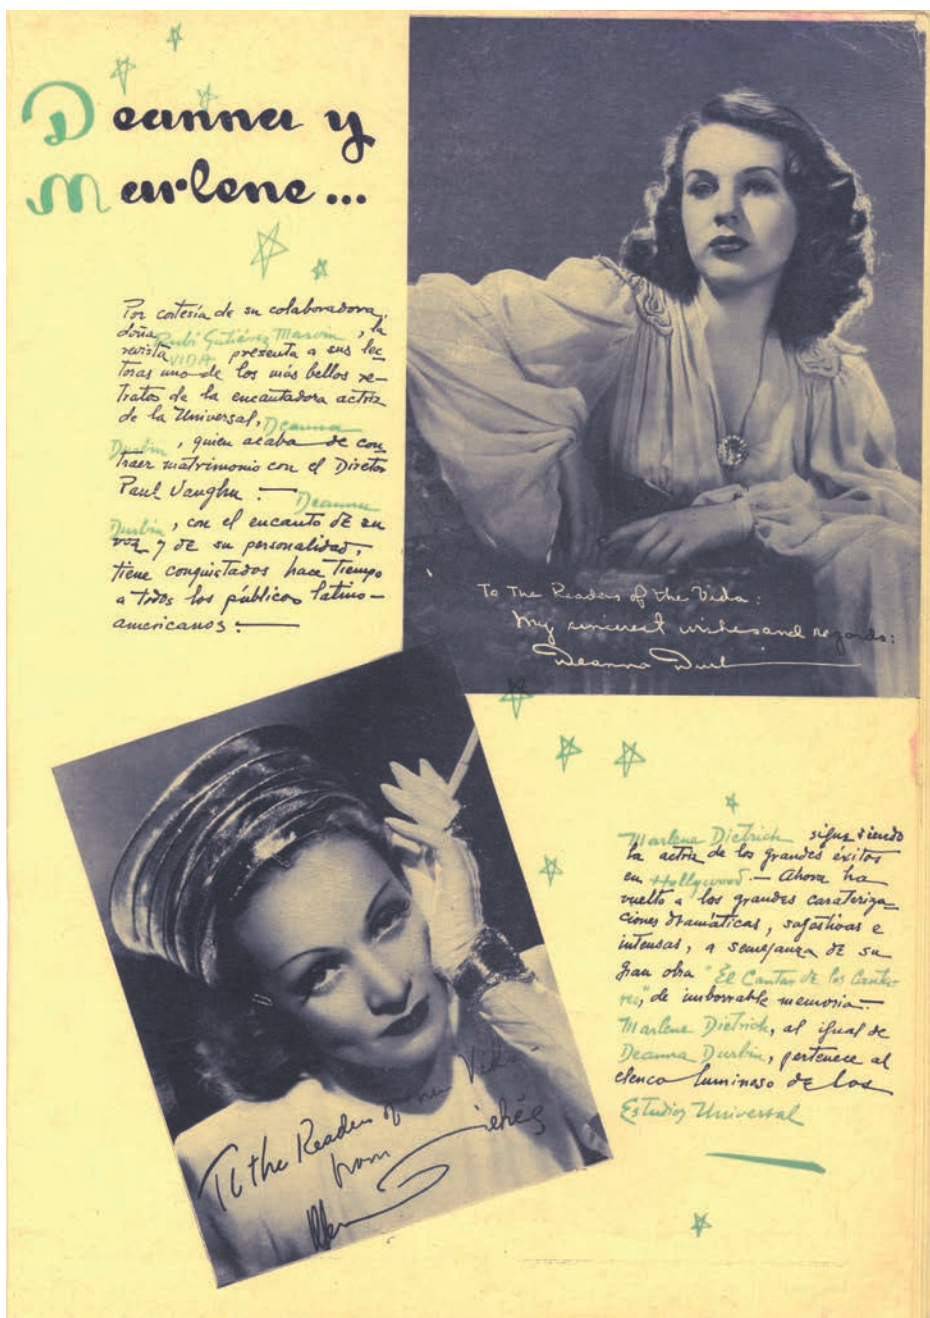 Deanna y
Marlene...
Por cortesía de su colaboradora,
doña Rubi Gutiérrez Marvin, la
revista VIDA presenta a sus lec-
toras uno de los más bellos re-
tratos de la encantadora actriz
de la Universal, Deanna
Durbin, quien acaba de con
traer matrimonio con el Diretor
Paul Vaughn.—Deanna
Durbin, con el encanto de su
voz y de su personalidad,
tiene conquistados hace tiempo
a todos los públicos latino-
americanos.—
To The Readers of the Vida:
My sincerest wishes and regards:
Deanna Durbin
To the Readers of Vida
from
Marlene Dietrich sigue siendo
la actriz de los grandes éxitos
en Hollywood.— Ahora ha
vuelto a los grandes carateriza-
ciones dramáticas, sujestivas e
intensas, a semejanza de su
gran obra "El Cantar de los Canta-
res", de imborrable memoria.—
Marlene Dietrich, al igual de
Deanna Durbin, pertenece al
elenco luminoso de los
Estudios Universal